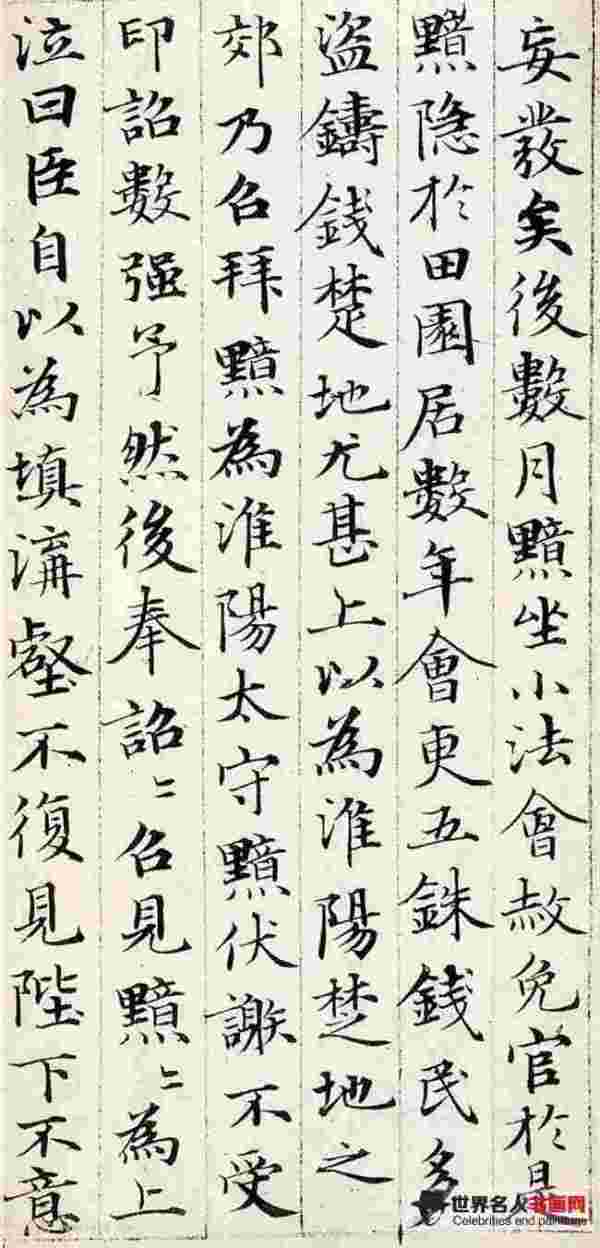 妄發矣後數月黯坐小法會赦免官於是
黯隐於田園居數年會更五銖錢民多
盜鑄錢楚地尤甚上以為淮陽楚地之
郊乃召拜黯為淮陽太守黯伏謝不受
印詔數强予然後奉詔〻召見黯〻為上
泣曰臣自以為填溝壑不復見陛下不意
世界名人书画网
Celebrities end painting